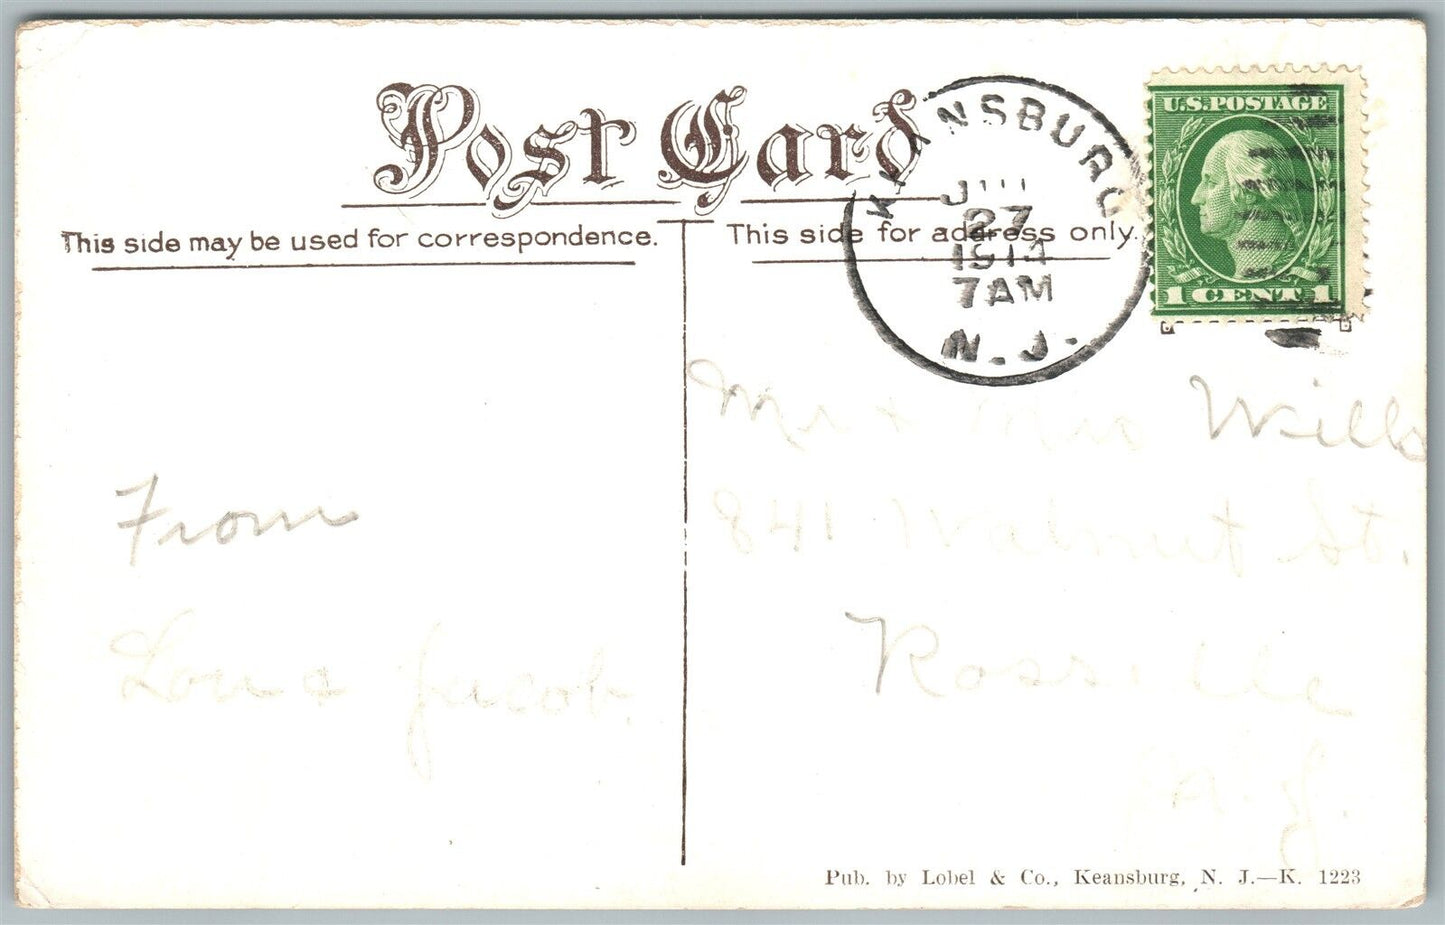 Post Card
This side may be used for correspondence.
This side for address only.
KEANSBURG
27
7 AM
N. J.
U.S. POSTAGE
1 CENT 1
Mr & Mrs Wills
841 Walnut St.
Rossville
From
Lou & Jacob.
Pub. by Lobel & Co., Keansburg, N. J.—K. 1223